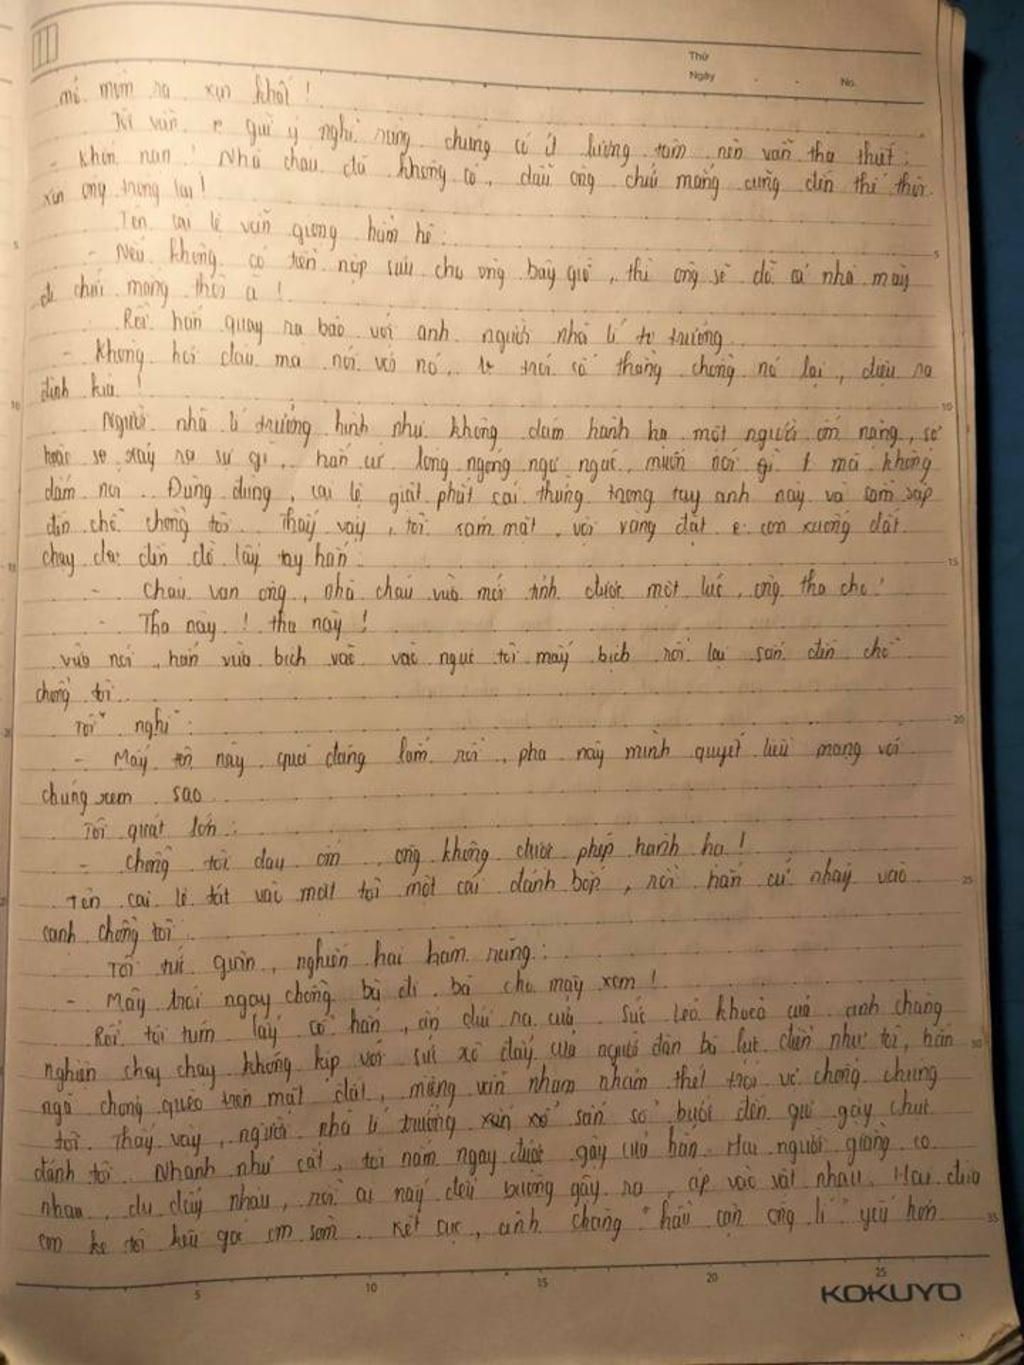 Thứ
Ngày No.
mỉm ra xin khất !
Tôi vẫn nghĩ rằng chúng có ít lương tâm nên vẫn tha thiết :
- Khốn nạn ! Nhà cháu đã không có, dẫu ông chửi mắng cũng đến thế thôi.
xin ông trông lại !
Tên cai lệ vẫn giọng hầm hè :
- Nếu không có tiền nộp sưu cho ông bây giờ, thì ông sẽ dỡ cả nhà mày
đi chửi mắng thôi à !
Rồi hắn quay ra bảo với anh người nhà lí trưởng
- Không hơi đâu mà nói với nó, trói cổ thằng chồng nó lại, điệu ra
đình kia !
Người nhà lí trưởng hình như không dám hành hạ một người ốm nặng, sợ
hoặc sẽ xảy ra sự gì, hắn cứ lóng ngóng ngơ ngác, muốn nói gì mà không
dám nói. Đùng đùng, cai lệ giật phắt cái thừng trong tay anh này và sầm sập
đến chỗ chồng tôi. Thấy vậy, tôi xám mặt, vội vàng đặt con xuống đất.
chạy đến đỡ lấy tay hắn :
- Cháu van ông, nhà cháu vừa mới tỉnh được một lúc, ông tha cho !
- Tha này ! tha này !
vừa nói, hắn vừa bịch vào vào ngực tôi mấy bịch rồi lại sấn đến chỗ
chồng tôi.
Tôi nghĩ :
- Mấy tên này quá đáng lắm rồi, pha này mình quyết liều mạng với
chúng xem sao.
Tôi quát lớn :
- Chồng tôi đau ốm, ông không được phép hành hạ !
Tên cai lệ tát vào mặt tôi một cái đánh bốp, rồi hắn cứ nhảy vào
cạnh chồng tôi.
Tôi tức quá, nghiến hai hàm răng :
- Mày trói ngay chồng bà đi, bà cho mày xem !
Rồi tôi túm lấy cổ hắn, ấn dúi ra cửa. Sức lẻo khoẻo của anh chàng
nghiện chạy chạy không kịp với sức xô đẩy của người đàn bà lực điền như tôi, hắn
ngã chỏng quèo trên mặt đất, miệng vẫn nham nhảm thét trói vợ chồng chúng
tôi. Thấy vậy, người nhà lí trưởng sấn sổ bước đến giơ gậy chực
đánh tôi. Nhanh như cắt, tôi nắm ngay được gậy của hắn. Hai người giằng co
nhau, du đẩy nhau, rồi ai nấy đều buông gậy ra, áp vào vật nhau. Hai đứa
con tôi kêu gọi om sòm. Kết cục, anh chàng "hầu cận ông lí" yếu hơn
5 10 15 20 25
KOKUYO